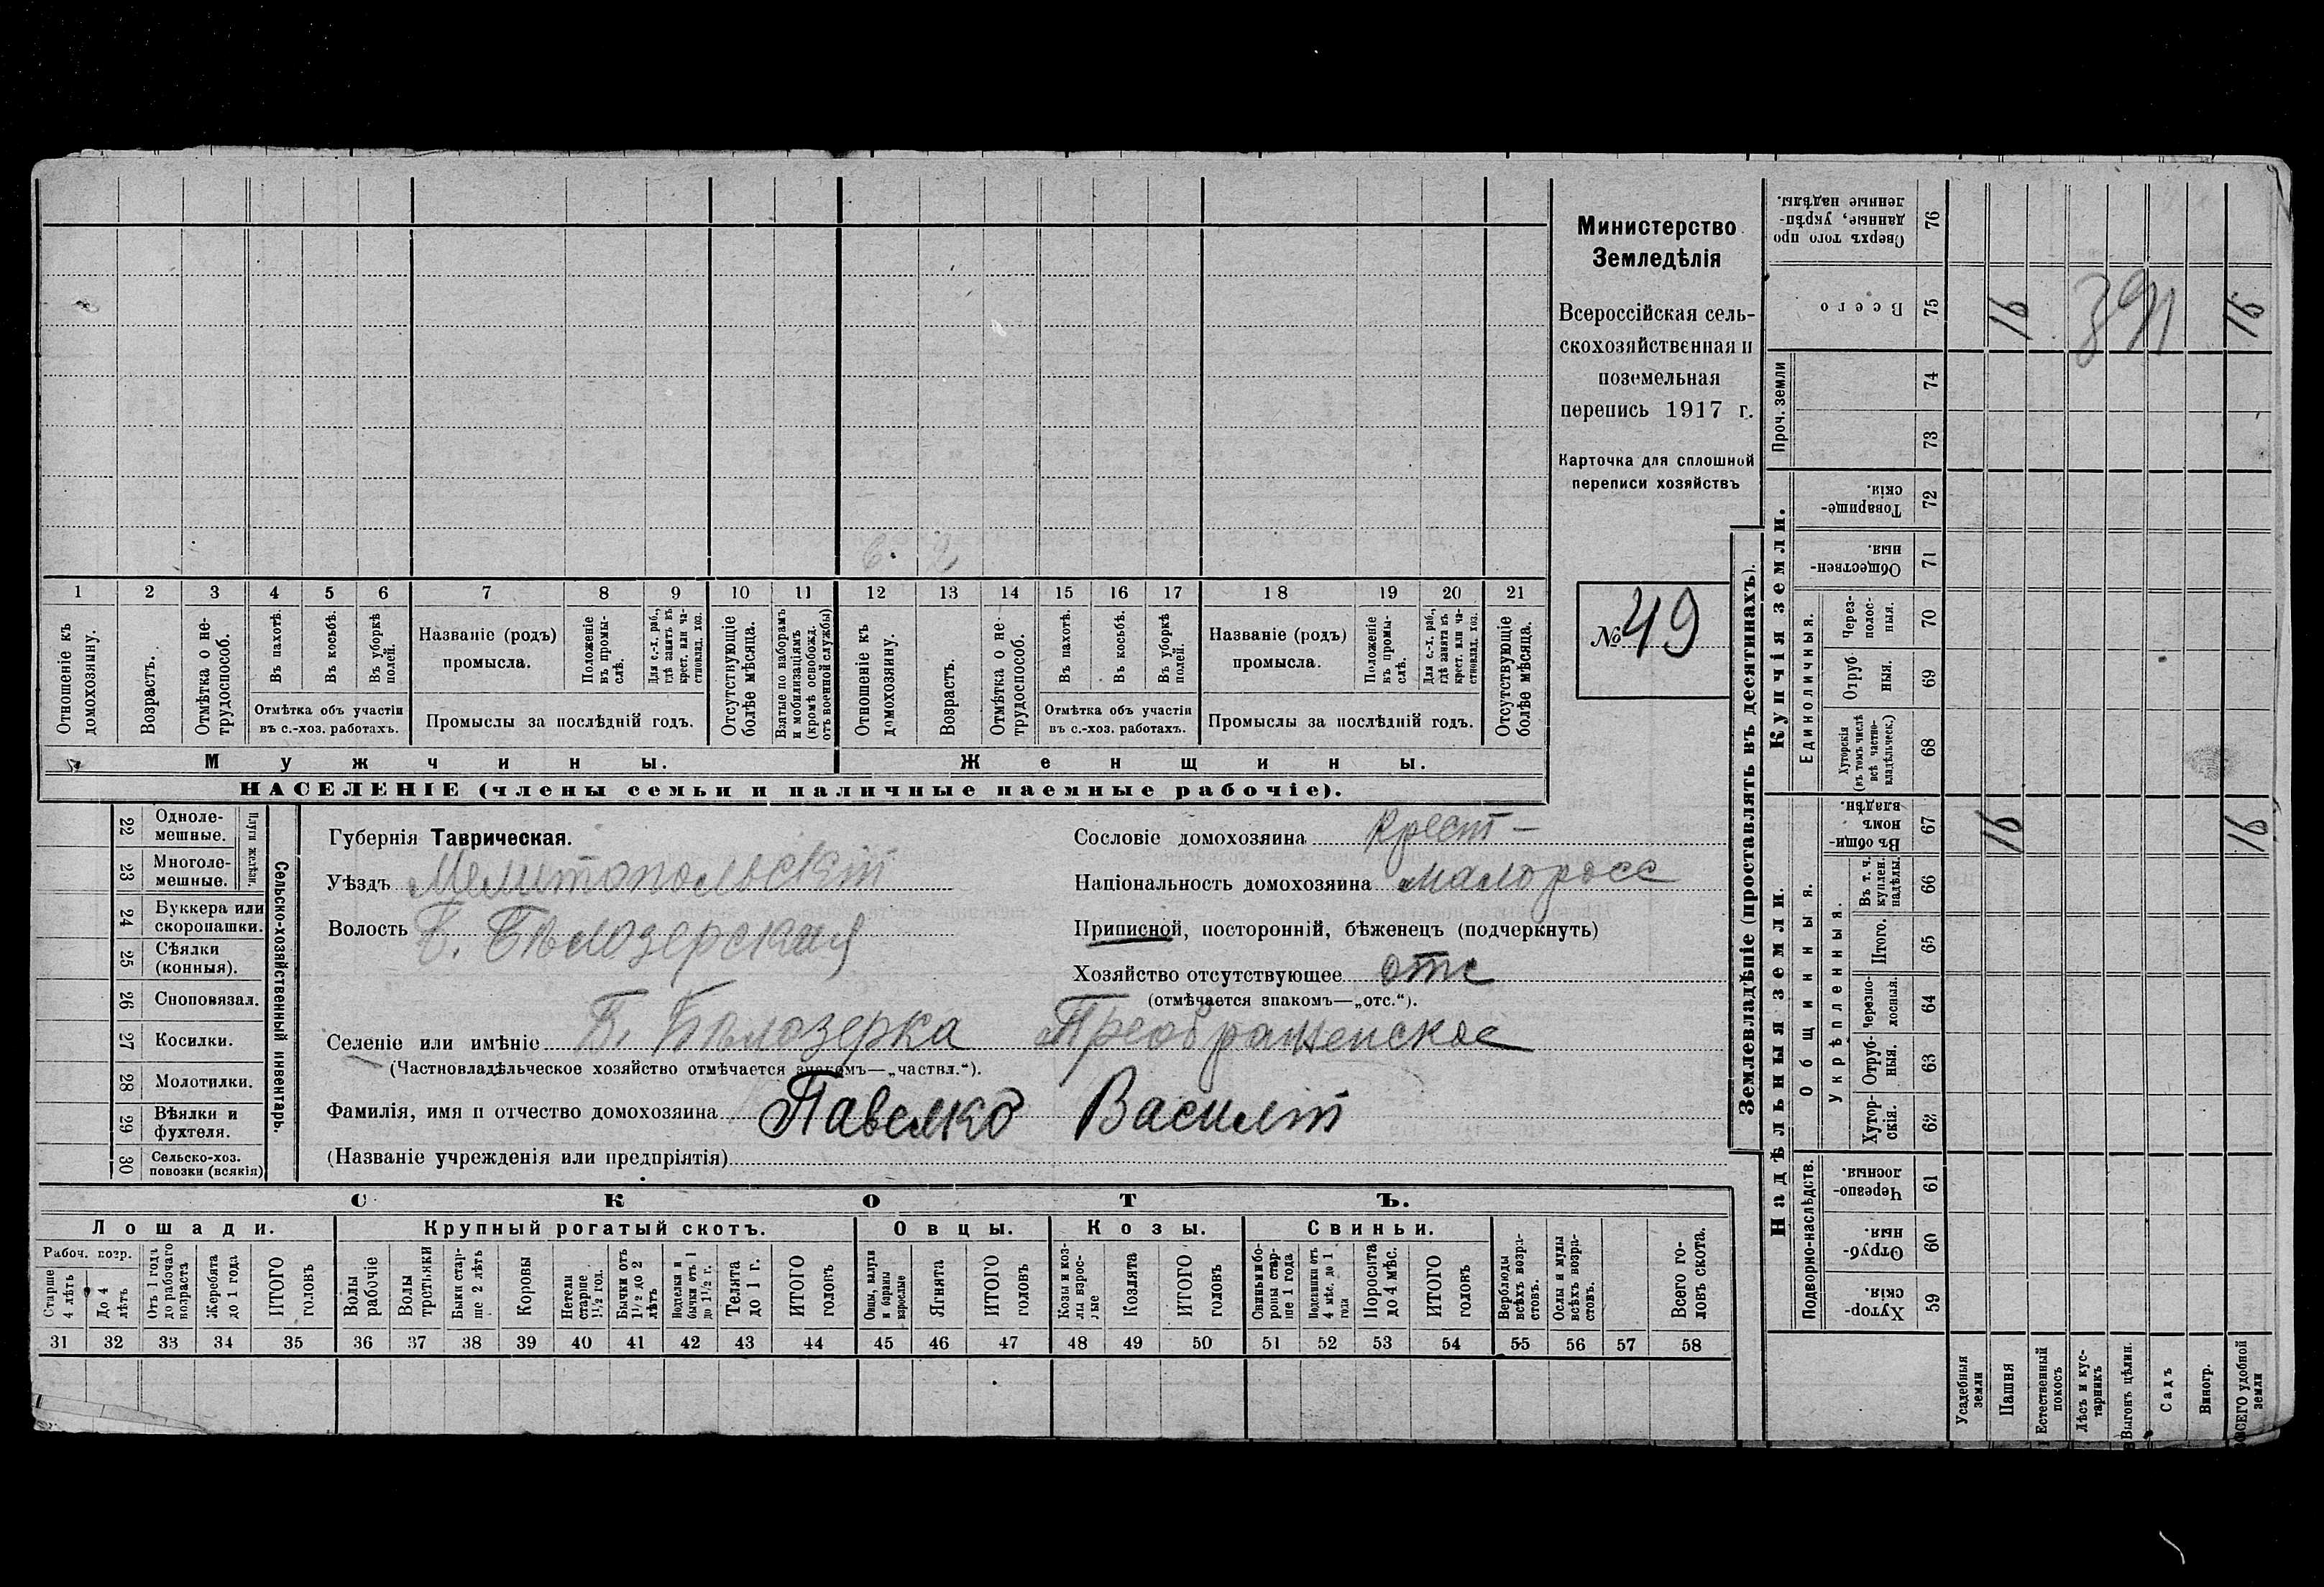 Министерство
Земледѣлія
Всероссійская сель-
скохозяйственная и
поземельная
перепись 1917 г.
Карточка для сплошной
переписи хозяйствъ
№ 49
1 2 3 4 5 6 7 8 9 10 11 12 13 14 15 16 17 18 19 20 21
Отношеніе къ домохозяину.
Возрастъ.
Отмѣтка о не-трудоспособ.
Въ пахотѣ.
Въ косьбѣ.
Въ уборкѣ полей.
Отмѣтка объ участіи
въ с.-хоз. работахъ.
Названіе (родъ)
промысла.
Положеніе въ промы-слѣ.
Для с.-х. раб., гдѣ занятъ въ крест. или ча-стновлад. хоз.
Промыслы за послѣдній годъ.
Отсутствующіе болѣе мѣсяца.
Взятые по наборамъ и мобилизаціямъ (кромѣ освобожд. отъ военной службы)
Отношеніе къ домохозяину.
Возрастъ.
Отмѣтка о не-трудоспособ.
Въ пахотѣ.
Въ косьбѣ.
Въ уборкѣ полей.
Отмѣтка объ участіи
въ с.-хоз. работахъ.
Названіе (родъ)
промысла.
Положеніе въ промы-слѣ.
Для с.-х. раб., гдѣ занята въ крест. или ча-стновлад. хоз.
Промыслы за послѣдній годъ.
Отсутствующіе болѣе мѣсяца.
Мужчины.
Женщины.
НАСЕЛЕНІЕ (члены семьи и наличные наемные рабочіе).
22 Одноле-мешные.
23 Многоле-мешные.
Плуги желѣзн.
24 Буккера или скоропашки.
25 Сѣялки (конныя).
26 Сноповязал.
27 Косилки.
28 Молотилки.
29 Вѣялки и фухтеля.
30 Сельско-хоз. повозки (всякія)
Сельско-хозяйственный инвентарь.
Губернія Таврическая.
Уѣздъ Мелитопольскій
Волость Б. Бѣлозерская
Сословіе домохозяина Крест-
Національность домохозяина малоросс
Приписной, посторонній, бѣженецъ (подчеркнуть)
Хозяйство отсутствующее отс
(отмѣчается знакомъ—„отс.“).
Селеніе или имѣніе Б. Бѣлозерка Преображенское
(Частновладѣльческое хозяйство отмѣчается знакомъ—„частвл.“).
Фамилія, имя и отчество домохозяина Павелко Василій
(Названіе учрежденія или предпріятія)
СКОТЪ.
Лошади.
Крупный рогатый скотъ.
Овцы.
Козы.
Свиньи.
Рабоч. возр.
Старше 4 лѣтъ
До 4 лѣтъ
Отъ 1 года до рабочаго возраста
Жеребята до 1 года
ИТОГО головъ
Волы рабочіе
Волы третьяки
Быки стар-ше 2 лѣтъ
Коровы
Нетели старше 1½ год.
Бычки отъ 1½ до 2 лѣтъ
Подтелки и бычки отъ 1 до 1½ г.
Телята до 1 г.
ИТОГО головъ
Овцы, валухи и бараны взрослые
Ягнята
ИТОГО головъ
Козы и коз-лы взрос-лые
Козлята
ИТОГО головъ
Свиньи и бо-ровы стар-ше 1 года
Подсвинки отъ 4 мѣс. до 1 года
Поросята до 4 мѣс.
ИТОГО головъ
Верблюды всѣхъ возра-стовъ.
Ослы и мулы всѣхъ возра-стовъ.
Всего го-ловъ скота.
31 32 33 34 35 36 37 38 39 40 41 42 43 44 45 46 47 48 49 50 51 52 53 54 55 56 57 58
Землевладѣніе (проставлять въ десятинахъ).
Надѣльныя земли.
Купчія земли.
Проч. земли
Подворно-наслѣдств.
Общинныя.
Укрѣпленныя.
Единоличныя.
Сверхъ того про данные, укрѣп-ленные надѣлы. 76
Всего 75 16 391 16
74
73
Товарище-скія. 72
Обществен-ныя. 71
Через-полос-ныя. 70
Отруб ныя. 69
Хуторскія (въ томъ числѣ всѣ частно-владѣльческ.) 68
Въ общи-номъ владѣн. 67 16 16
Въ т. ч. куплен. надѣлы. 66
Итого. 65
Черезпо-лосныя. 64
Отруб-ныя. 63
Хутор-скія. 62
Черезпо-лосныя. 61
Отруб-ныя. 60
Хутор-скія. 59
Усадебныя земли
Пашня
Естественный покосъ
Лѣсъ и кус-тарникъ
Выгонъ цѣлин.
Садъ
Виногр.
ВСЕГО удобной земли